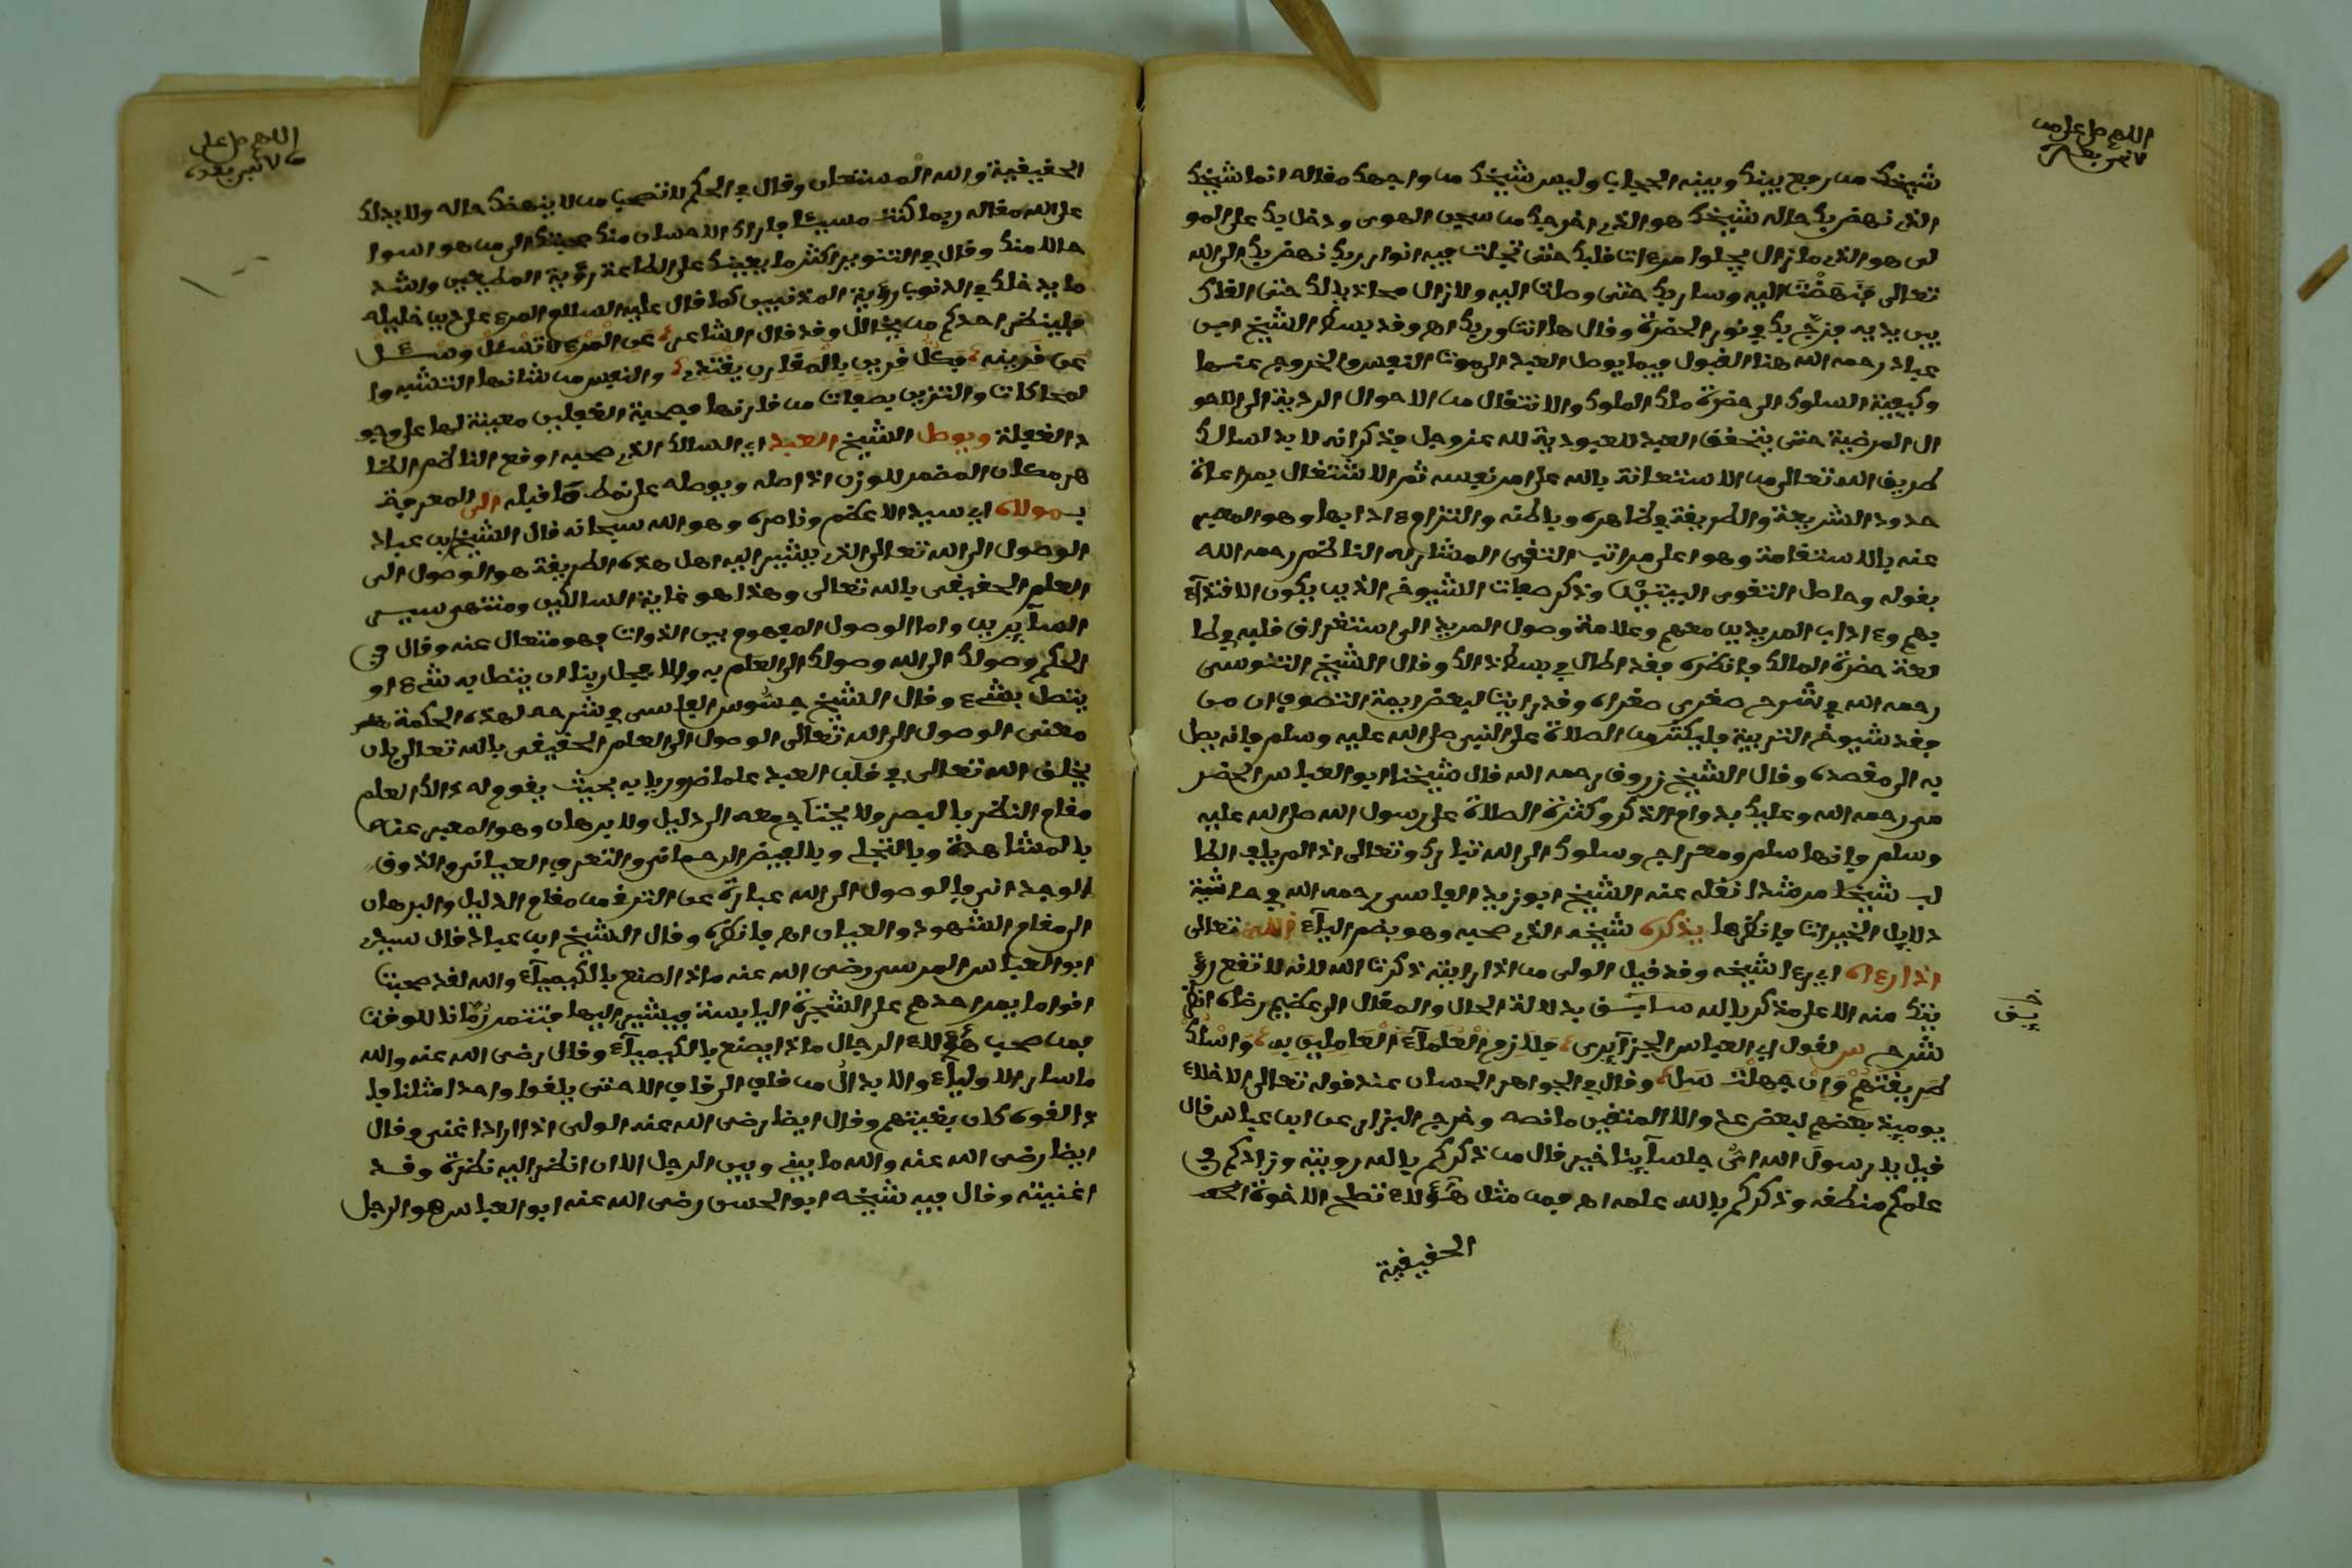 اللهم صل على من
لا نبي بعده
شيخك من رفع بينك وبينه الحجاب وليس شيخك من واجهك مقاله انما شيخك
الذي نهض بك حاله شيخك هو الذي اخرجك من سجن الهوى ودخل بك على المو
لى هو الذي ما زال يجلوا مرءات قلبك حتى تجلت فيه انوار ربك نهض بك الى الله
تعالى فنهضت اليه وسار بك حتى وصلت اليه ولا زال محاذيا لك حتى القاك
بين يديه فزج بك في نور الحضرة وقال ها انت وربك اه وقد بسط الشيخ ابن
عباد رحمه الله هنا القول فيما يوصل العبد الى موت النفس والخروج عنها
وكيفية السلوك الى حضرة ملك الملوك والانتقال من الاحوال الردية الى الاحو
ال المرضية حتى يتحقق العبد للعبودية لله عز وجل فذكر انه لا بد لسالك
طريق الله تعالى من الاستعانة بالله على امر نفسه ثم الاشتغال بمراعاة
حدود الشريعة والطريقة في ظاهره وباطنه والتزام ءادابها وهو المعبر
عنه بالاستقامة وهو اعلى مراتب التقوى المشار له الناظم رحمه الله
بقوله وحاصل التقوى البيتين وذكر صفات الشيوخ الذين يكون الاقتدآء
بهم وءاداب المريدين معهم وعلامة وصول المريد الى استغراق قلبه في طا
لعة حضرة المالك فانظره فقد اطال في بسط ذالك وقال الشيخ السنوسي
رحمه الله في شرح صغرى صغراه وقد راينا لبعض ايمة التصوف ان من
فقد شيوخ التربية فليكثر من الصلاة على النبي صلى الله عليه وسلم فانه يصل
به الى مقصده وقال الشيخ زروق رحمه الله قال شيخنا ابو العباس الحضر
مي رحمه الله وعليك بدوام الذكر وكثرة الصلاة على رسول الله صلى الله عليه
وسلم فانها سلم ومعراج وسلوك الى الله تبارك وتعالى اذا لم يلق الطا
لب شيخا مرشدا نقله عنه الشيخ ابو زيد الفاسي رحمه الله في حاشية
دلايل الخيرات فانظرها يذكره شيخه الذي صحبه وهو بضم اليآء الله تعالى
اذا رءاه اي رءا شيخه وقد قيل الولي من اذا رايته ذكرت الله لانه لا تقع رؤ
يتك منه الا على مذكر بالله سايق بدلالة الحال والمقال الى عظيم رضاه انظر
شرح س لقول ابي العباس الجزآيري فلازم العلمآء العاملين به واسلك
طريقتهم وان جهلت سل وقال في الجواهر الحسان عند قوله تعالى الاخلاء
يوميذ بعضهم لبعض عدو الا المتقين ما نصه وخرج البزار عن ابن عباس قال
قيل يا رسول الله اي جلسآينا خير قال من ذكركم بالله رويته وزادكم في
علمكم منطقه وذكركم بالله علمه اه فمن مثل هؤلاء تصلح الاخوة
الحقيقية
اللهم صل على
من لا نبي بعده
الحقيقية والله المستعان وقال في الحكم لا تصحب من لا ينهضك حاله ولا يدلك
على الله مقاله ربما كنت مسيئا فاراك الاحسان منك صحبتك الى من هو اسوا
حالا منك وقال في التنوير اكثر ما يعينك على الطاعة رؤية المطيعين واشد
ما يدخلك في الذنوب رؤية المذنبين كما قال عليه السلام المرء على دين خليله
فلينظر احدكم من يخالل وقد قال الشاعر عن المرء لا تسئل وسل
عن قرينه فكل قرين بالمقارن يقتدي والنفس من شانها التشبه وا
لمحاكات والتزين بصفات من قارنها فصحبة الغافلين معينة لها على وجو
د الغفلة ويوصل الشيخ العبد اي السالك الذي صحبه اوقع الناظم الظا
هر مكان المضمر للوزن اذ اصله ويوصله على نمط ما قبله الى المعرفة
بمولاه اي سيده الاعظم وناصره وهو الله سبحانه قال الشيخ ابن عباد
الوصول الى الله تعالى الذي يشير اليه اهل هذه الطريقة هو الوصول الى
العلم الحقيقي بالله تعالى وهذا هو غاية السالكين ومنتهى سير
السآيرين واما الوصول المفهوم بين الذوات فهو متعال عنه وقال في
الحكم وصولك الى الله وصولك الى العلم به والا فجل ربنا ان يتصل به شيء او
يتصل بشيء وقال الشيخ جسوس الفاسي في شرحه لهذه الحكمة
معنى الوصول الى الله تعالى الوصول الى العلم الحقيقي بالله تعالى بان
يخلق الله تعالى في قلب العبد علما ضروريا به بحيث يقوم له ذالك العلم
مقام النظر بالبصر ولا يحتاج معه الى دليل ولا برهان وهو المعبر عنه
بالمشاهدة وبالتجلي وبالفيض الرحماني والتعرف العياني والذوق
الوجداني فالوصول الى الله عبارة عن الترق من مقام الدليل والبرهان
الى مقام الشهود والعيان اه فانظره وقال الشيخ ابن عباد قال سيدي
ابو العباس المرسي رضي الله عنه ماذا اصنع بالكيميآء والله لقد صحبت
اقواما يمر احدهم على الشجرة اليابسة فيشير اليها فتثمر رمانا للوقت
فمن صحب هؤلاء الرجال ماذا يصنع بالكيميآء وقال رضي الله عنه والله
ما سار الاوليآء والابدال من قاف الى قاف الا حتى يلقوا واحدا مثلنا فا
ذا لقوه كان بغيتهم وقال ايضا رضي الله عنه الولي اذا اراد اغنى وقال
ايضا رضي الله عنه والله ما بيني وبين الرجل الا ان انظر اليه نظرة وقد
اغنيته وقال فيه شيخه ابو الحسن رضي الله عنه ابو العباس هو الرجل